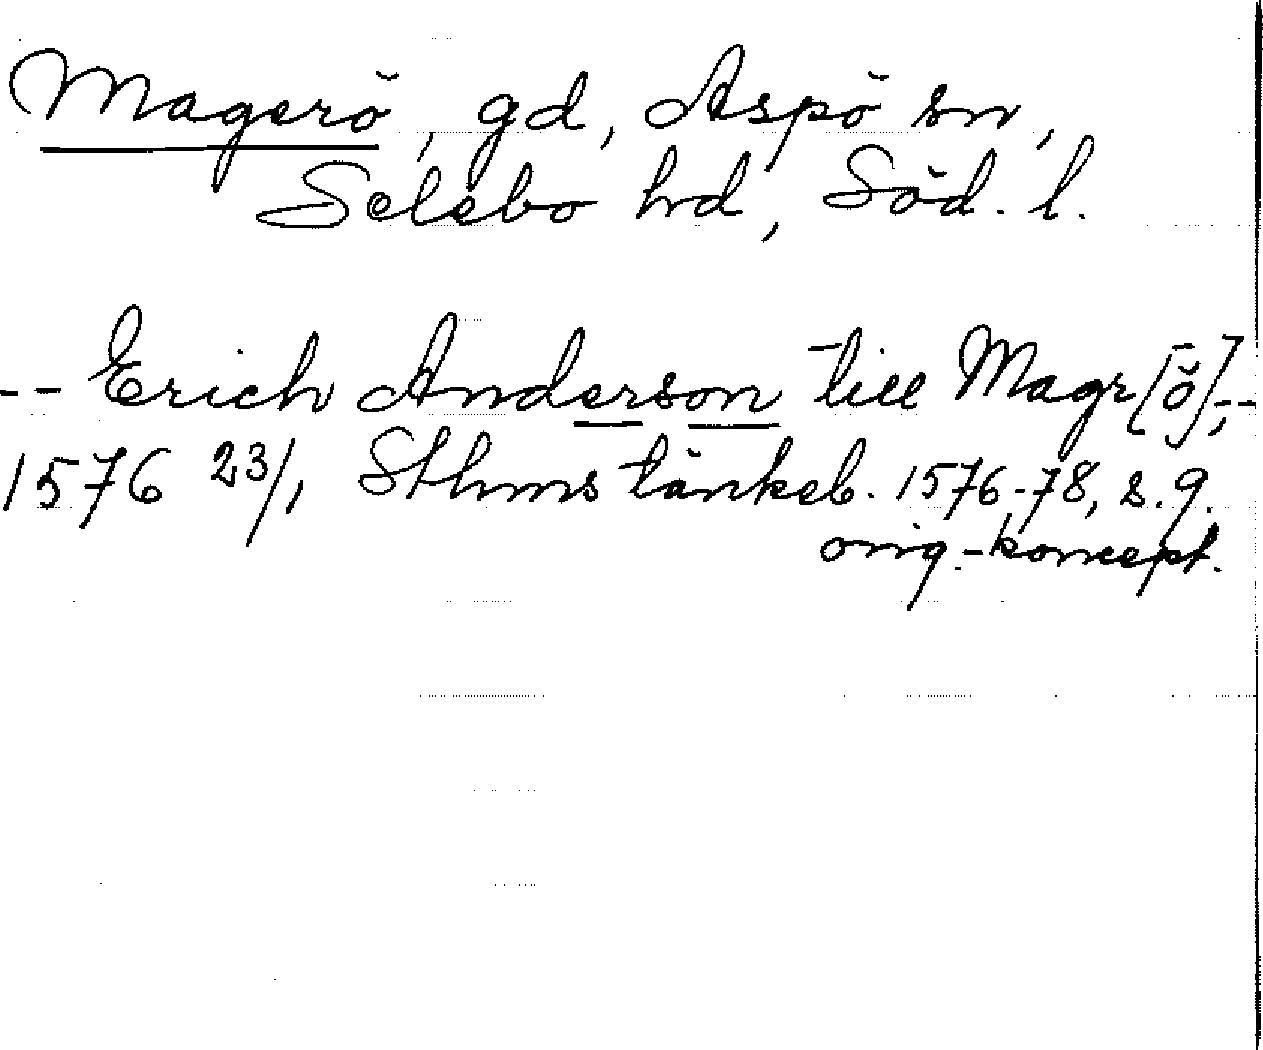 Magerö, gd, Aspö sn,
Selebo hd, Söd. l.
-- Erich Anderson till Magr[ö], --
1576 23/1, Sthms tänkeb. 1576-78, s. 9.
orig.-koncept.